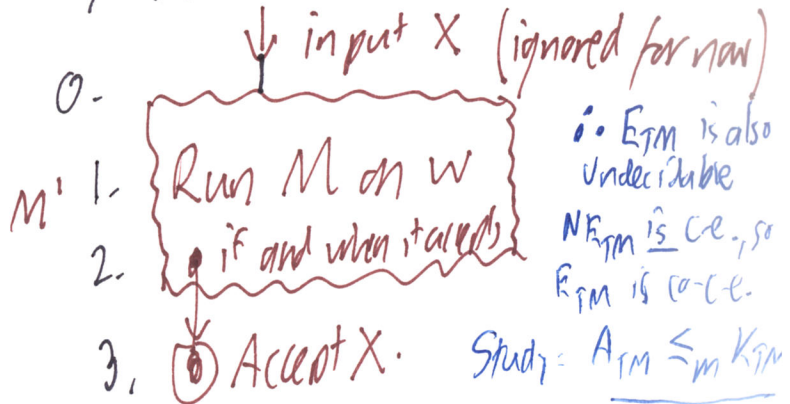 input X (ignored for now)
0.
M' 1. Run M on w
2. if and when it accepts
3. Accept X.
∴ E_TM is also
Undecidable
NE_TM is c.e., so
E_TM is co-c.e.
Study: A_TM ≤_m K_TM